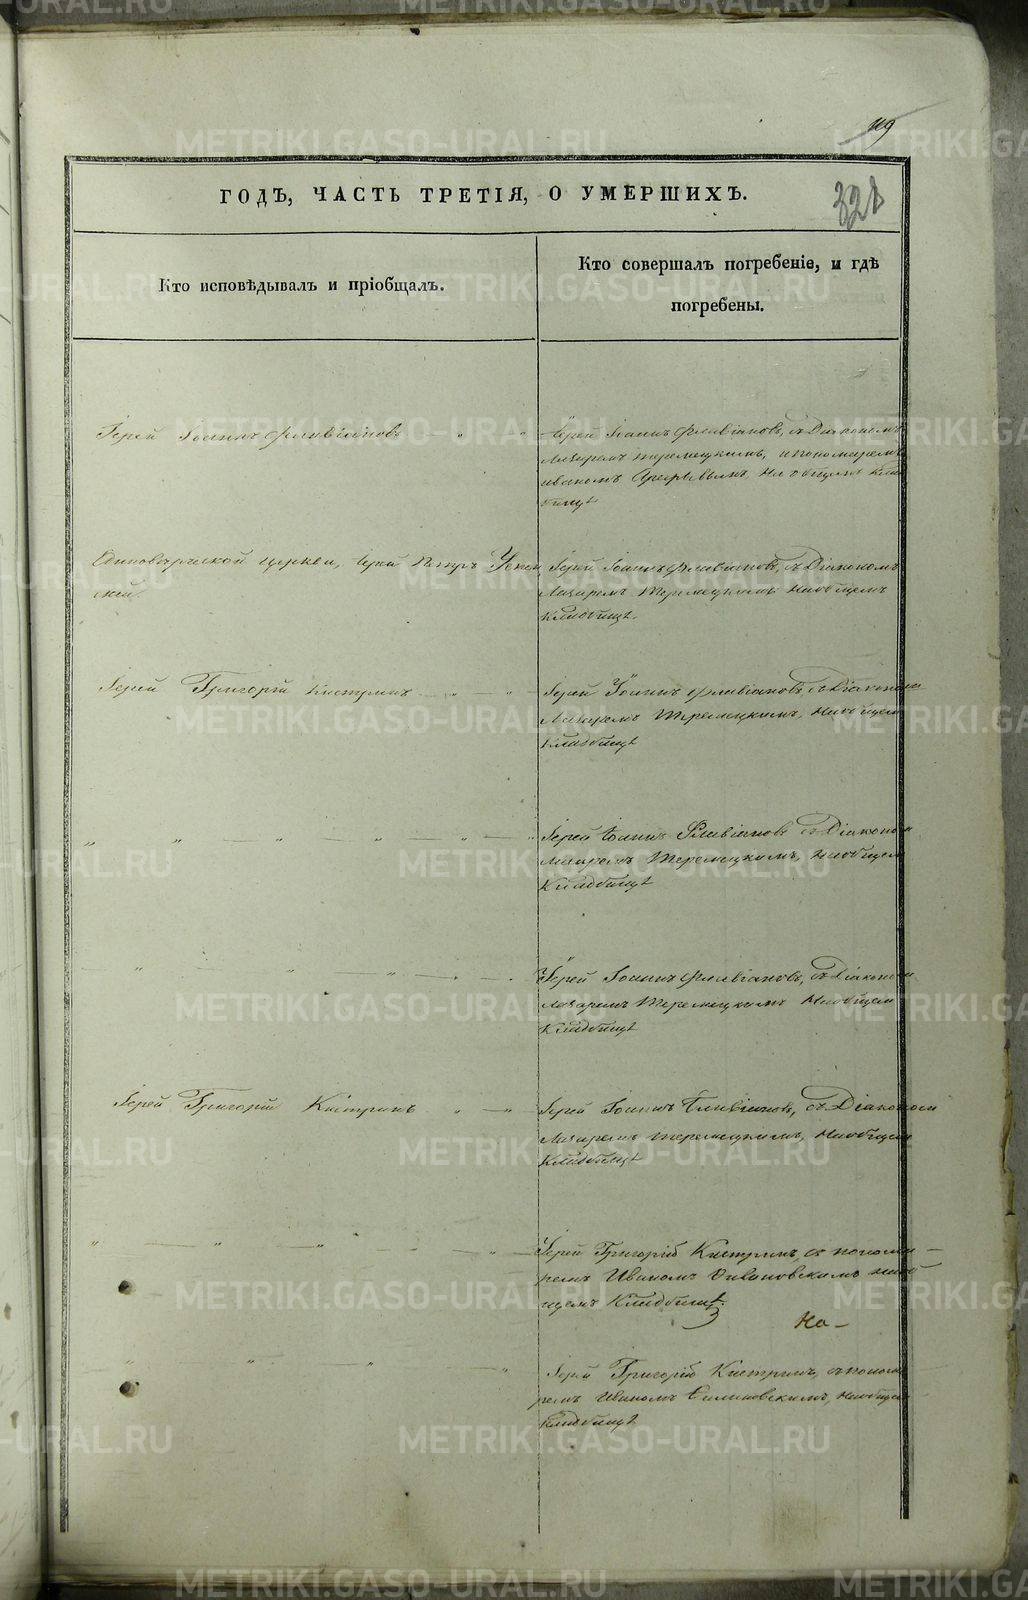 119
321
ГОДЪ, ЧАСТЬ ТРЕТІЯ, О УМЕРШИХЪ.
Кто исповѣдывалъ и пріобщалъ.
Кто совершалъ погребеніе, и гдѣ
погребены.
Іерей Іоаннъ Флавіановъ " "
Іерей Іоаннъ Флавіановъ, съ Діакономъ
Лазаремъ Теремецкимъ, и пономаремъ
Иваномъ на общемъ клад
бищѣ
Единовѣрческой церкви, Іерей Петръ Успен
скій.
Іерей Іоаннъ Флавіановъ, съ Діакономъ
Лазаремъ Теремецкимъ на общемъ
Кладбищѣ.
Іерей Григорій Кистринъ " — "
Іерей Іоаннъ Флавіановъ, съ Діакономъ
Лазаремъ Теремецкимъ, на общемъ
Кладбищѣ
" " — " — " — "
Іерей Іоаннъ Флавіановъ съ Діакономъ
Лазаремъ Теремецкимъ, на общем
Кладбищѣ
" — " — "
Іерей Іоаннъ Флавіановъ, съ Діакономъ
Лазаремъ Теремецкимъ на общем
Кладбищѣ
Іерей Григорій Кистринъ " — "
Іерей Іоаннъ Флавіановъ, съ Діакономъ
Лазаремъ Теремецкимъ, на общем
Кладбищѣ
" — " — " — "
Іерей Григорій Кистринъ, съ понома-
ремъ Иваномъ на об
щемъ Кладбищѣ.
На —
" " — " — "
Іерей Григорій Кистринъ, съ понома
ремъ Иваномъ на общем
Кладбищѣ
METRIKI.GASO-URAL.RU